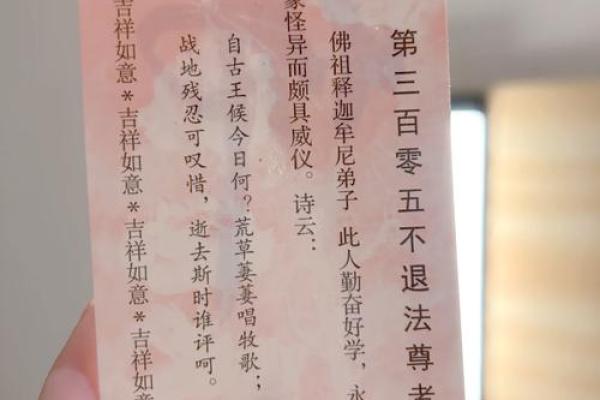 第三百零五不退法尊者
佛祖释迦牟尼弟子 此人勤奋好学，永
怪异而颇具威仪。诗云：
自古王候今日何？荒草萋萋唱牧歌；
战地残忍可叹惜，逝去斯时谁评呵。
吉祥如意*吉祥如意*吉祥如意*吉祥如意